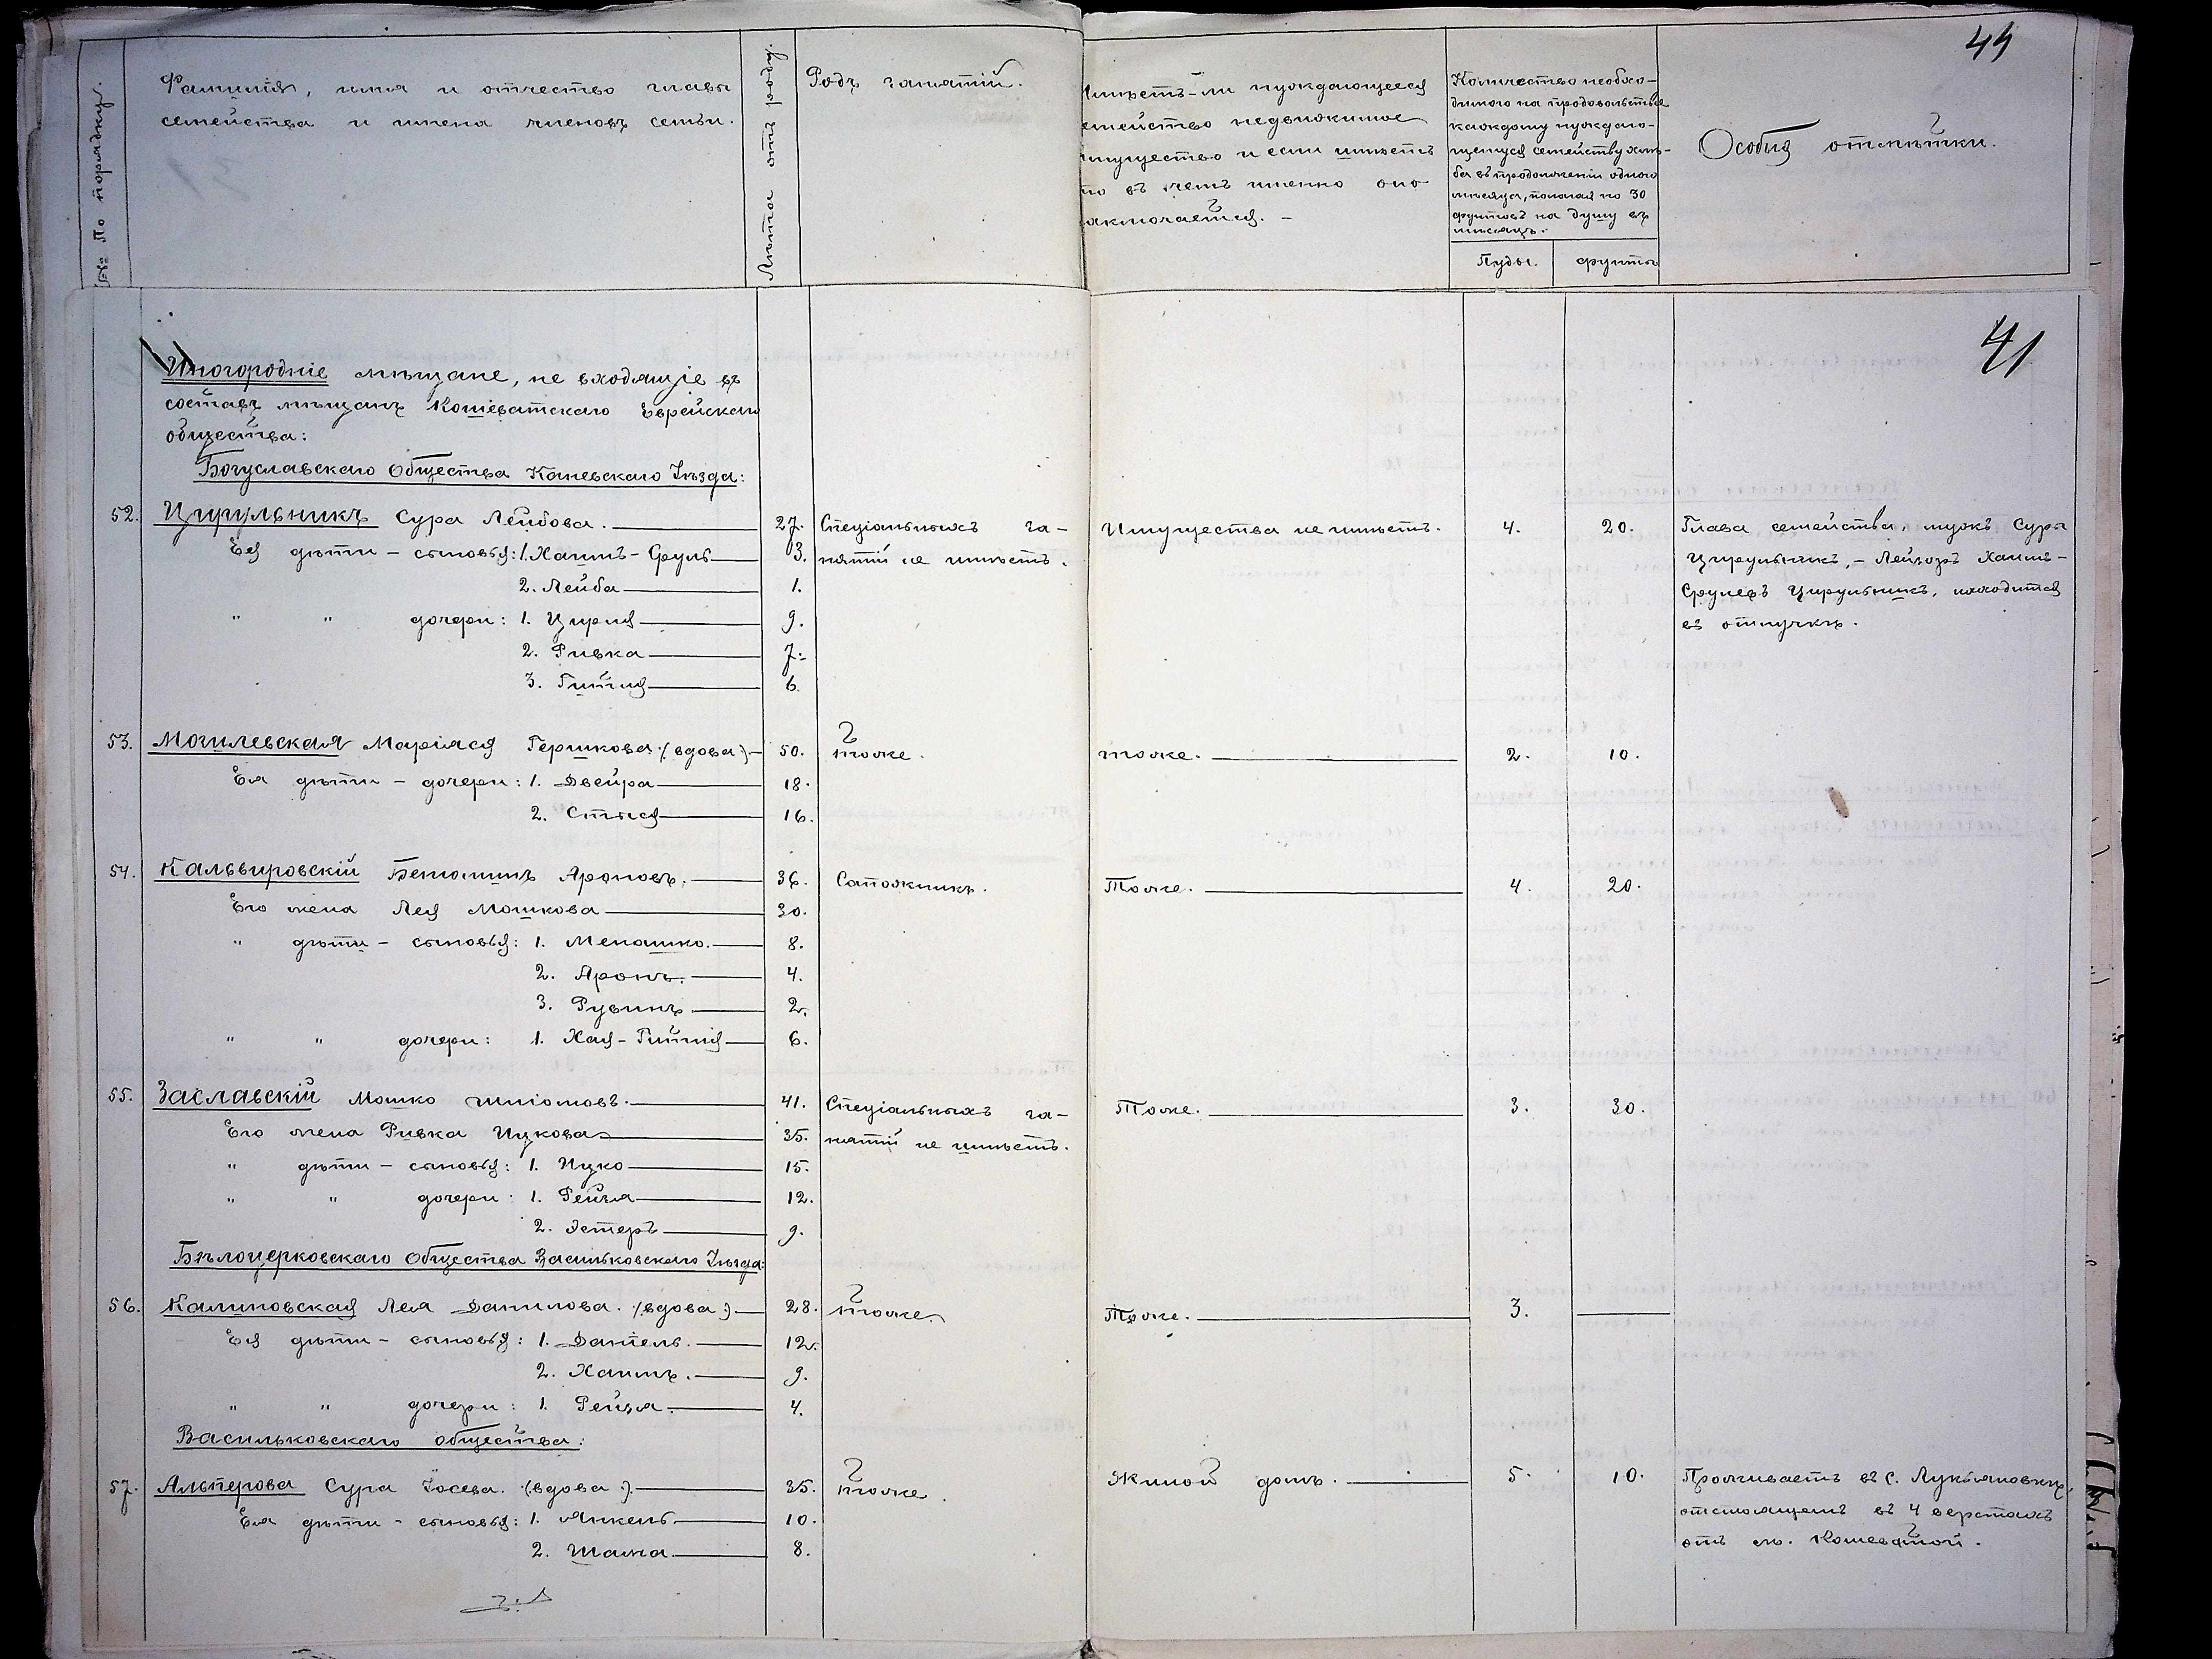 44
№ по порядку.
Фамилія, имя и отчество главы
семейства и имена членовъ семьи.
Лѣта отъ роду.
Родъ занятій.
Имѣетъ-ли нуждающееся
семейство недвижимое
имущество и если имѣетъ
то въ чемъ именно оно
заключается. -
Количество необхо-
димаго на продовольствіе
каждому нуждаю-
щемуся семейству хлѣ-
ба въ продолженіи одного
мѣсяца, полагая по 30
фунтовъ на душу въ
мѣсяцъ.
Пуды. фунты
Особыя отмѣтки.
41
Иногородніе мѣщане, не входящіе въ
составъ мѣщанъ Кошеватскаго Еврейскаго
общества:
Богуславскаго Общества Каневскаго Уѣзда:
52. Цирульникъ Сура Лейбова. 27. Спеціальныхъ за- Имущества не имѣетъ. 4. 20. Глава семейства, мужъ Суры
Ея дѣти - сыновья: 1. Хаимъ-Сруль 3. нятій не имѣетъ. Цирульникъ, - Лейзоръ Хаимъ-
2. Лейба 1. Срулевъ Цирульникъ, находится
" " дочери: 1. Цирля 9. въ отлучкѣ.
2. Ривка 7.
3. Гитля 6.
53. Могилевская Маріяся Гершкова (вдова) 50. тоже. тоже. 2. 10.
Ея дѣти - дочери: 1. Двейра 18.
2. Стыся 16.
54. Кальвировскій Беніаминъ Ароновъ. 36. Сапожникъ. Тоже. 4. 20.
Его жена Лея Мошкова 30.
" дѣти - сыновья: 1. Менашко. 8.
2. Аронъ. 4.
3. Рувинъ 2.
" " дочери: 1. Хая-Гитля 6.
55. Заславскій Мошко Шліомовъ. 41. Спеціальныхъ за- Тоже. 3. 30.
Его жена Ривка Ицкова 35. нятій не имѣетъ.
" дѣти - сыновья: 1. Ицко 15.
" " дочери: 1. Рейзля 12.
2. Эстеръ 9.
Бѣлоцерковскаго Общества Васильковскаго Уѣзда:
56. Калиновская Лея Данилова. (вдова) 28. тоже. Тоже. 3.
Ея дѣти - сыновья: 1. Даніель. 12.
2. Хаимъ. 9.
" " дочери: 1. Рейзля. 4.
Васильковскаго общества:
57. Альперова Сура Іосева. (вдова). 35. тоже. Жилой домъ. 5. 10. Проживаетъ въ с. Лукьяновкѣ,
Ея дѣти - сыновья: 1. Янкель 10. отстоящемъ въ 4 верстахъ
2. Шама 8. отъ м. Кошеватой.